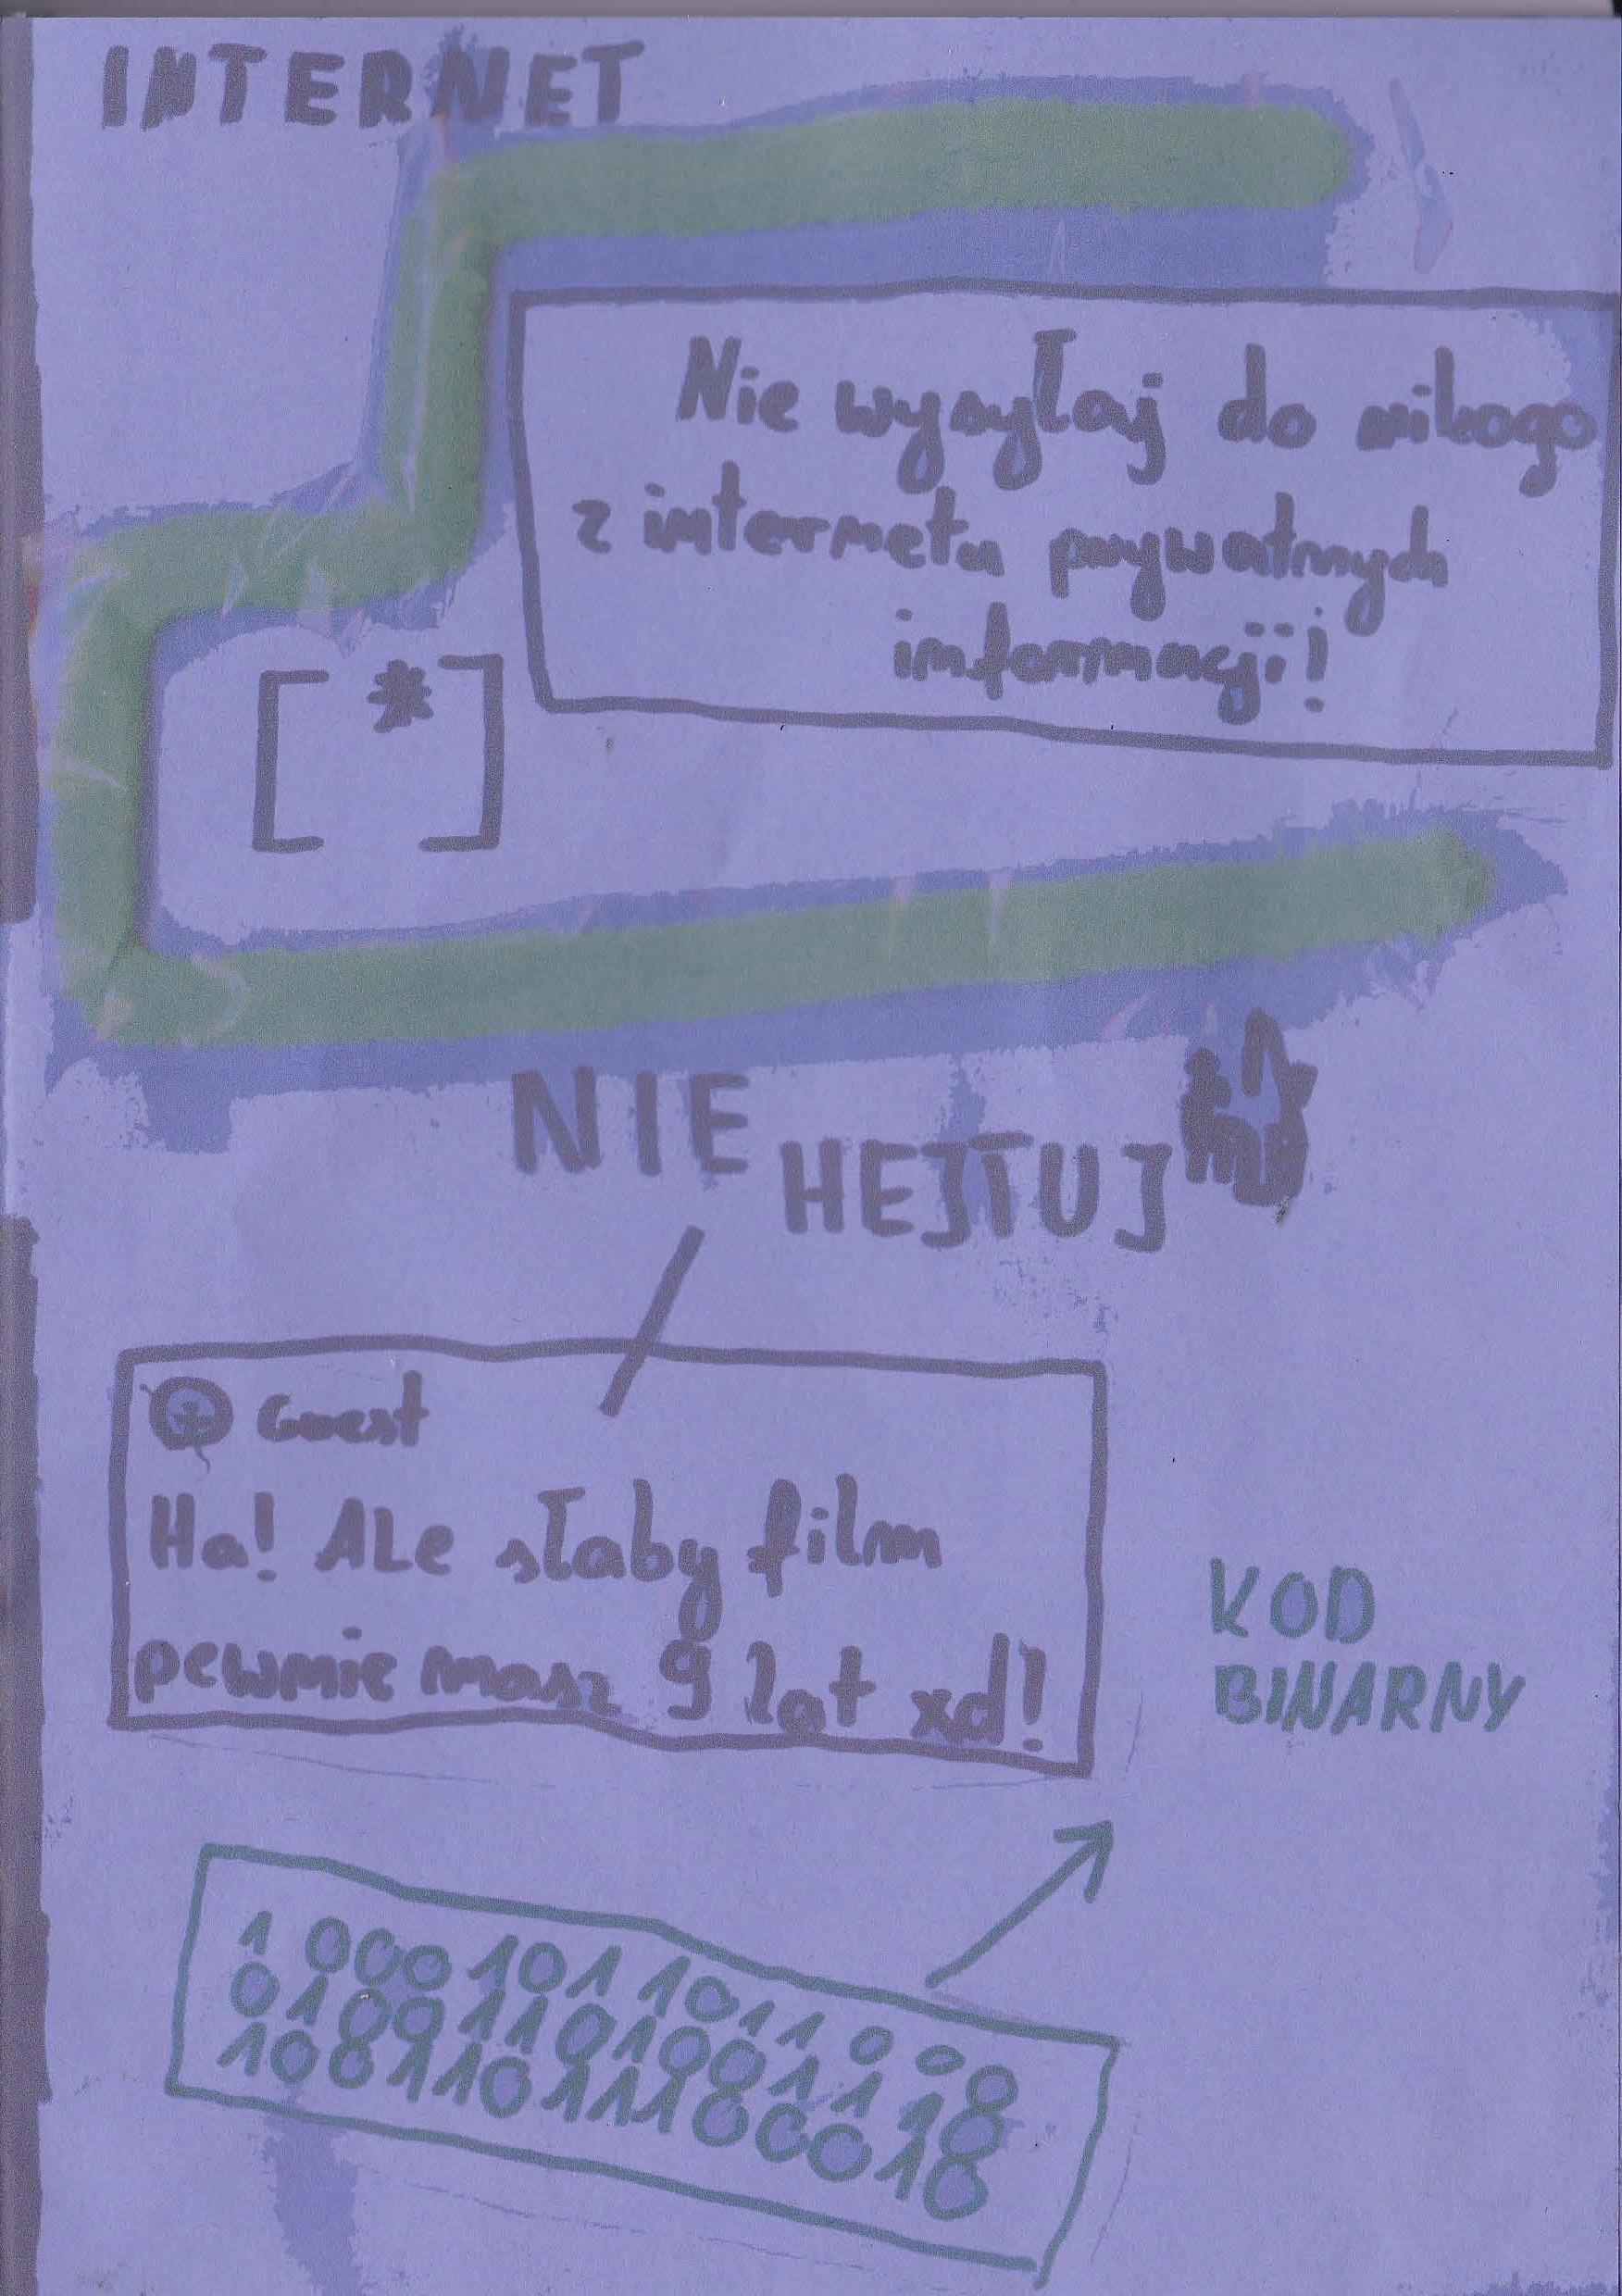 INTERNET
Nie wysyłaj do nikogo
z internetu prywatnych
informacji!
[*]
NIE
HEJTUJ
Guest
Ha! ALe słaby film
pewnie masz 9 lat xd!
KOD
BINARNY
1 000 101 1011 0 0 0
0100110100011 10
100110111000010